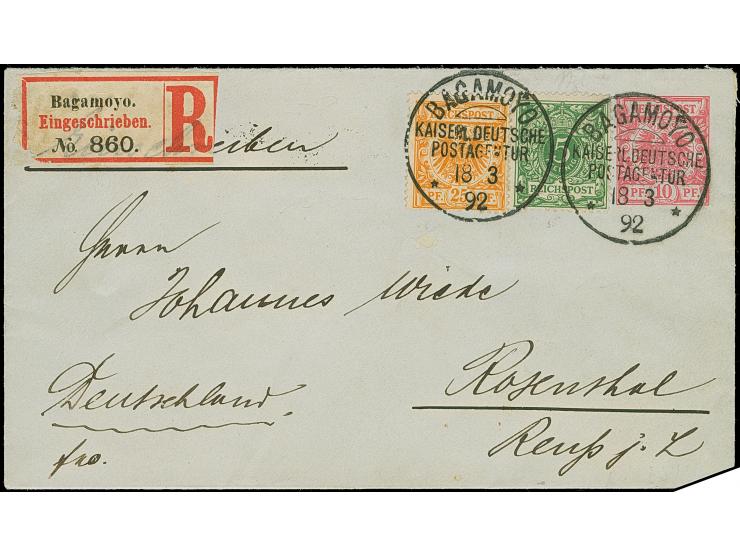 Bagamoyo.
Eingeschrieben.
No. 860.
R
BAGAMOYO
KAISERL. DEUTSCHE
POSTAGENTUR
18 3
92
PF. 25
5
REICHSPOST
BAGAMOYO
KAISERL. DEUTSCHE
POSTAGENTUR
18 3
92
10 PF.
Herrn
Johannes Wiede
Rosenthal
Deutschland.
Reuß j. L
fro.